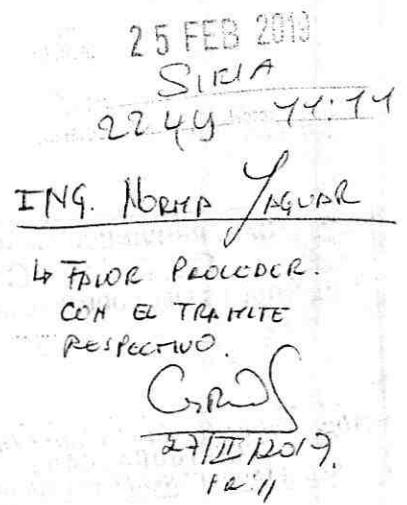 25 FEB 2019
SIRIA
2249 11:11
ING. NORMA YAGUAR
↳ FAVOR PROCEDER.
CON EL TRAMITE
RESPECTIVO.
27/II/2019.